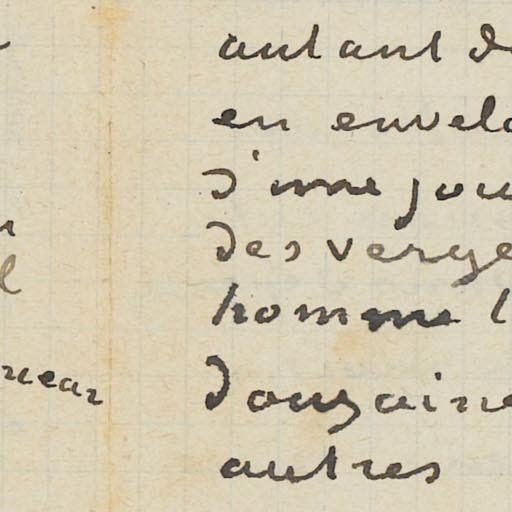 autant d
en envelo
d'une jou
des verge
homme l
douzaine
autres